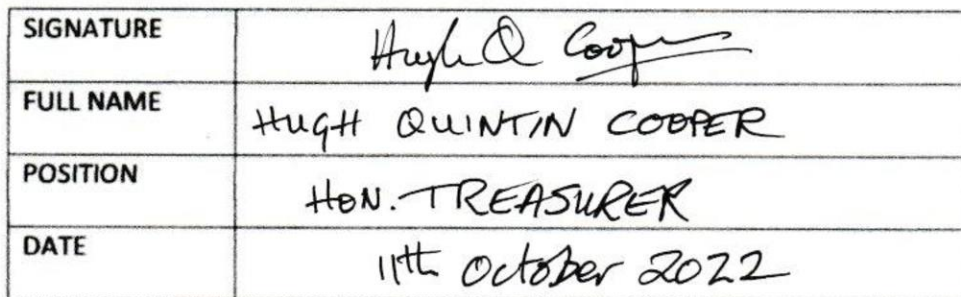 SIGNATURE Hugh Q Cooper
FULL NAME HUGH QUINTIN COOPER
POSITION HON. TREASURER
DATE 11th October 2022